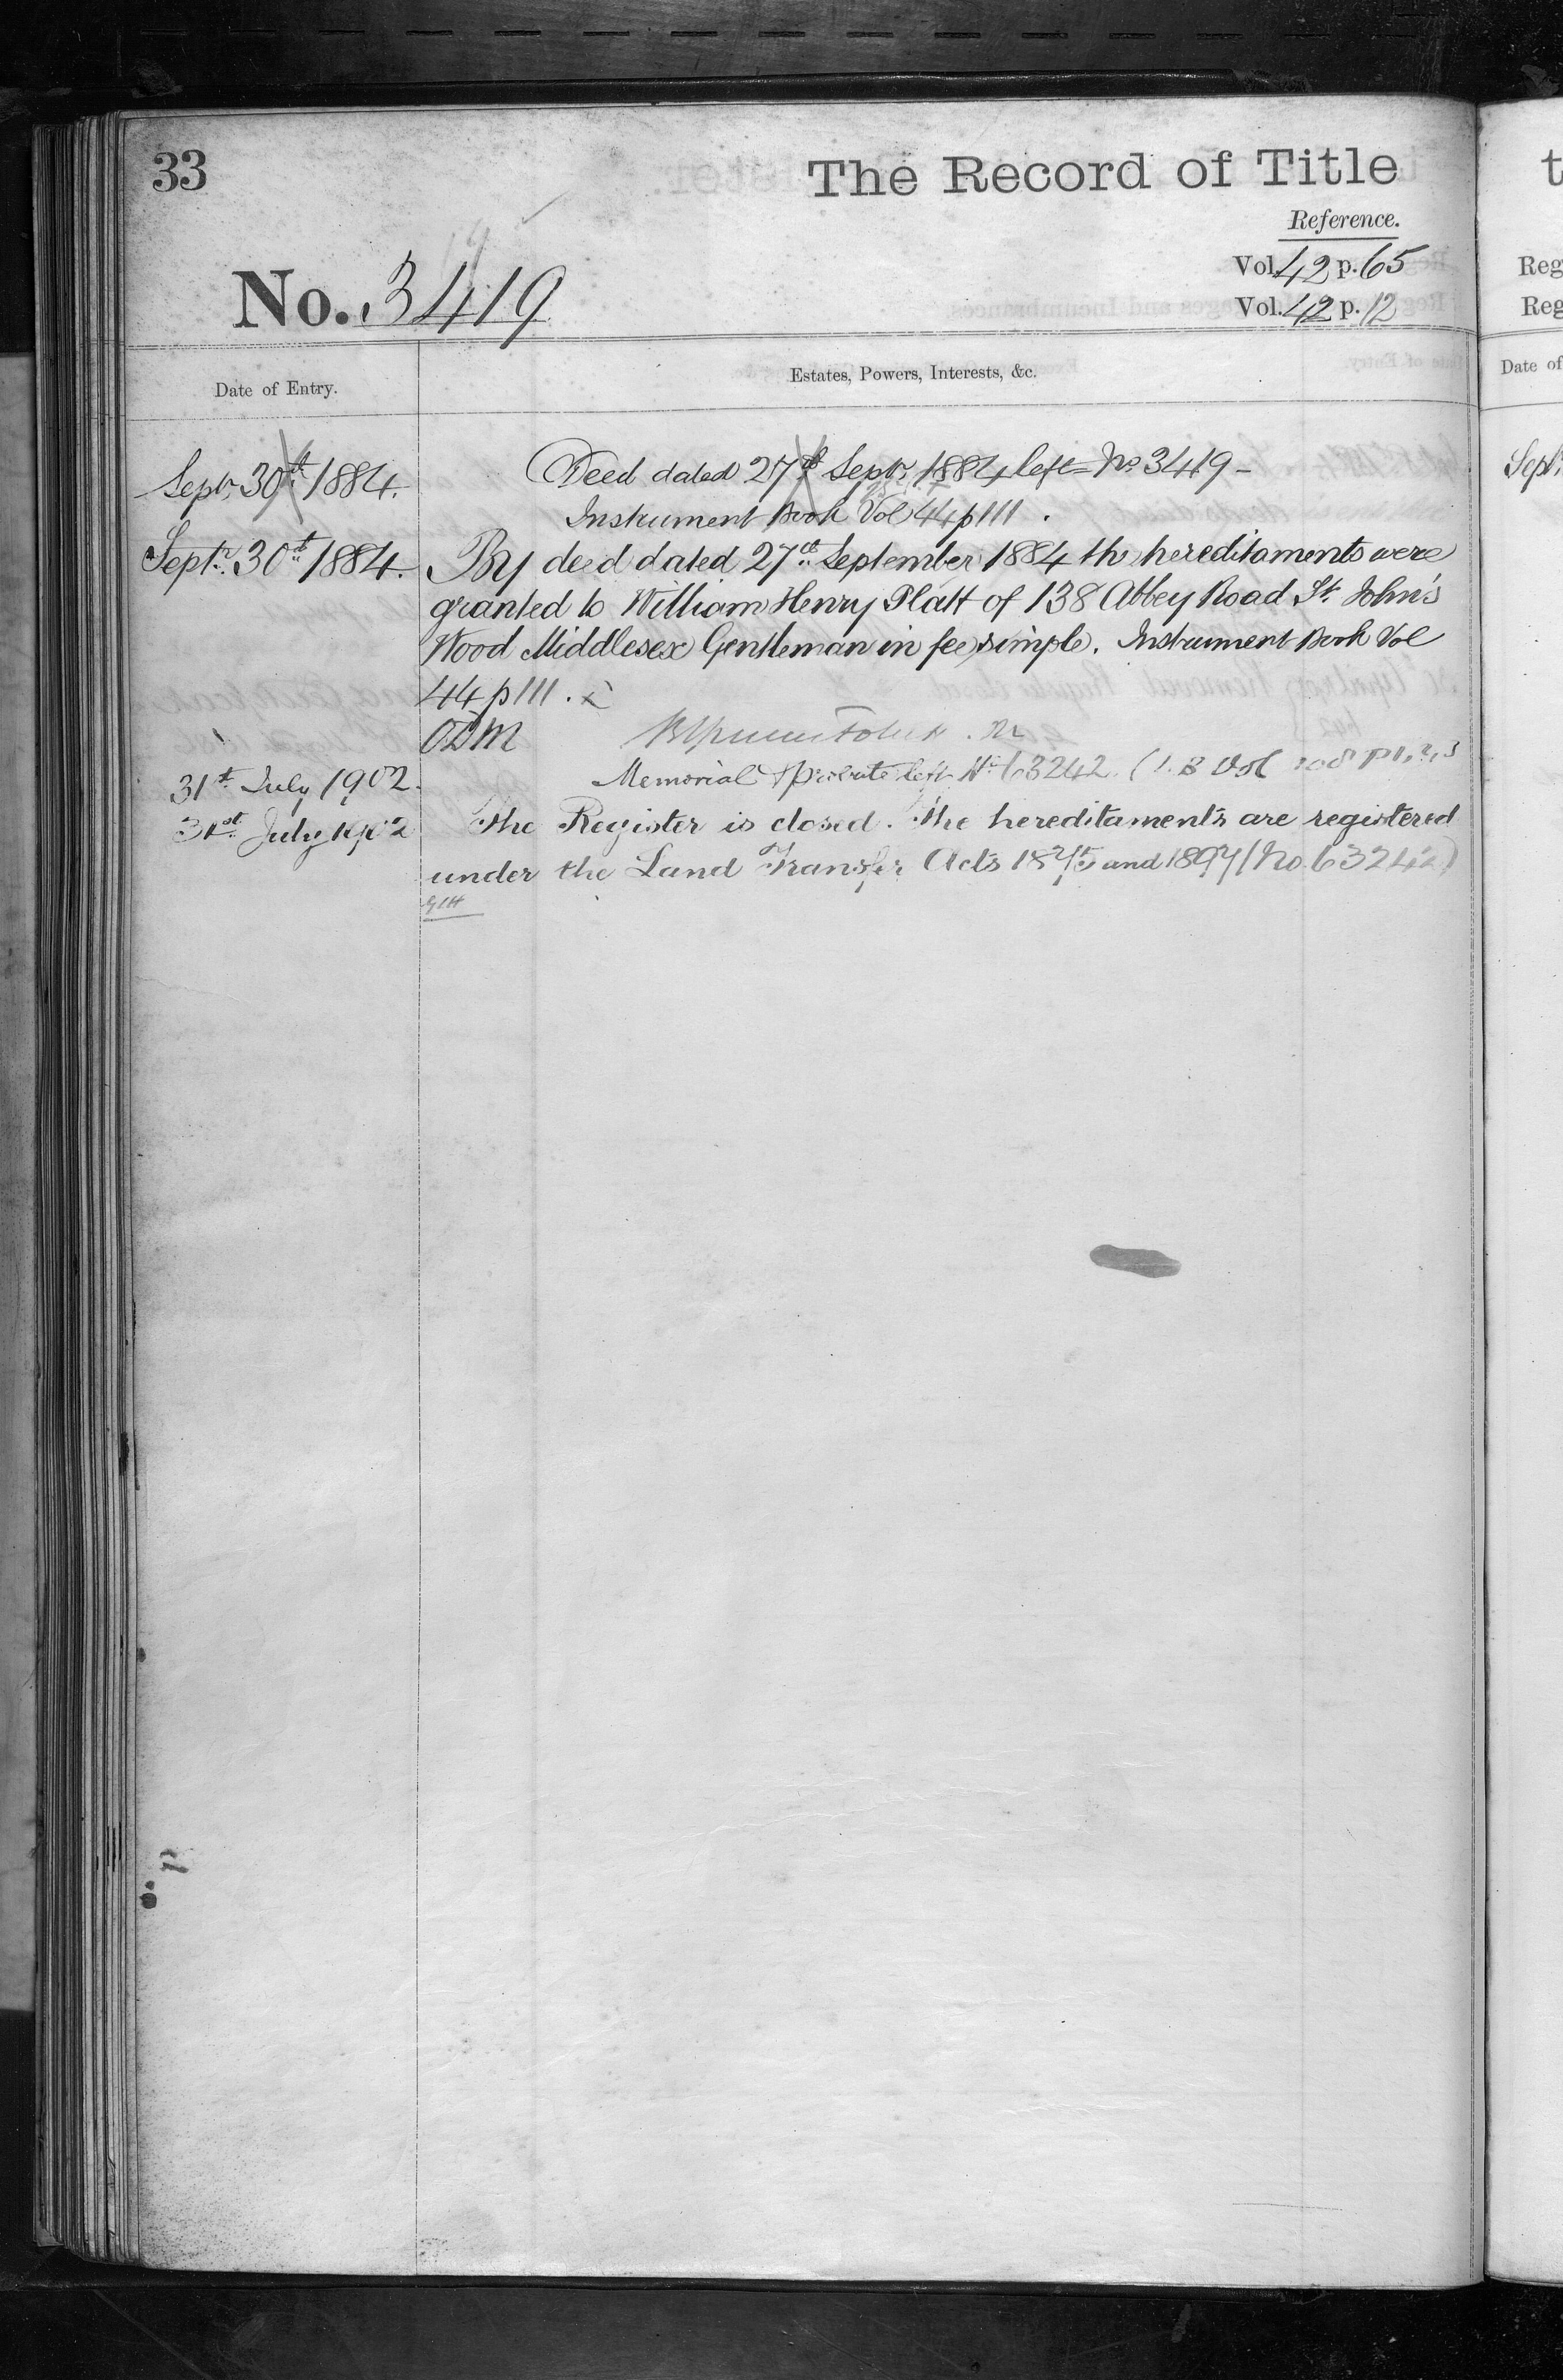 33
The Record of Title
Reference.
Vol. 42 p. 65
No. 3419
Vol. 42 p. 12
Date of Entry.
Estates, Powers, Interests, &c.
Sept.r 30th 1884.
Deed dated 27th Sept.r 1884 left No 3419 -
Instrument Book Vol 44 p 111.
Sept.r 30th 1884.
By deed dated 27th September 1884 the hereditaments were
granted to William Henry Platt of 138 Abbey Road St. John's
Wood Middlesex Gentleman in fee simple. Instrument Book Vol
44 p 111.
31st July 1902.
Memorial & Probate left No 63242. (I. B Vol 208 p 1, 2, 3
31st July 1902
The Register is closed. The hereditaments are registered
under the Land Transfer Acts 1875 and 1897 (No. 63242)
GIH
t
Reg
Reg
Date of
Sept.r